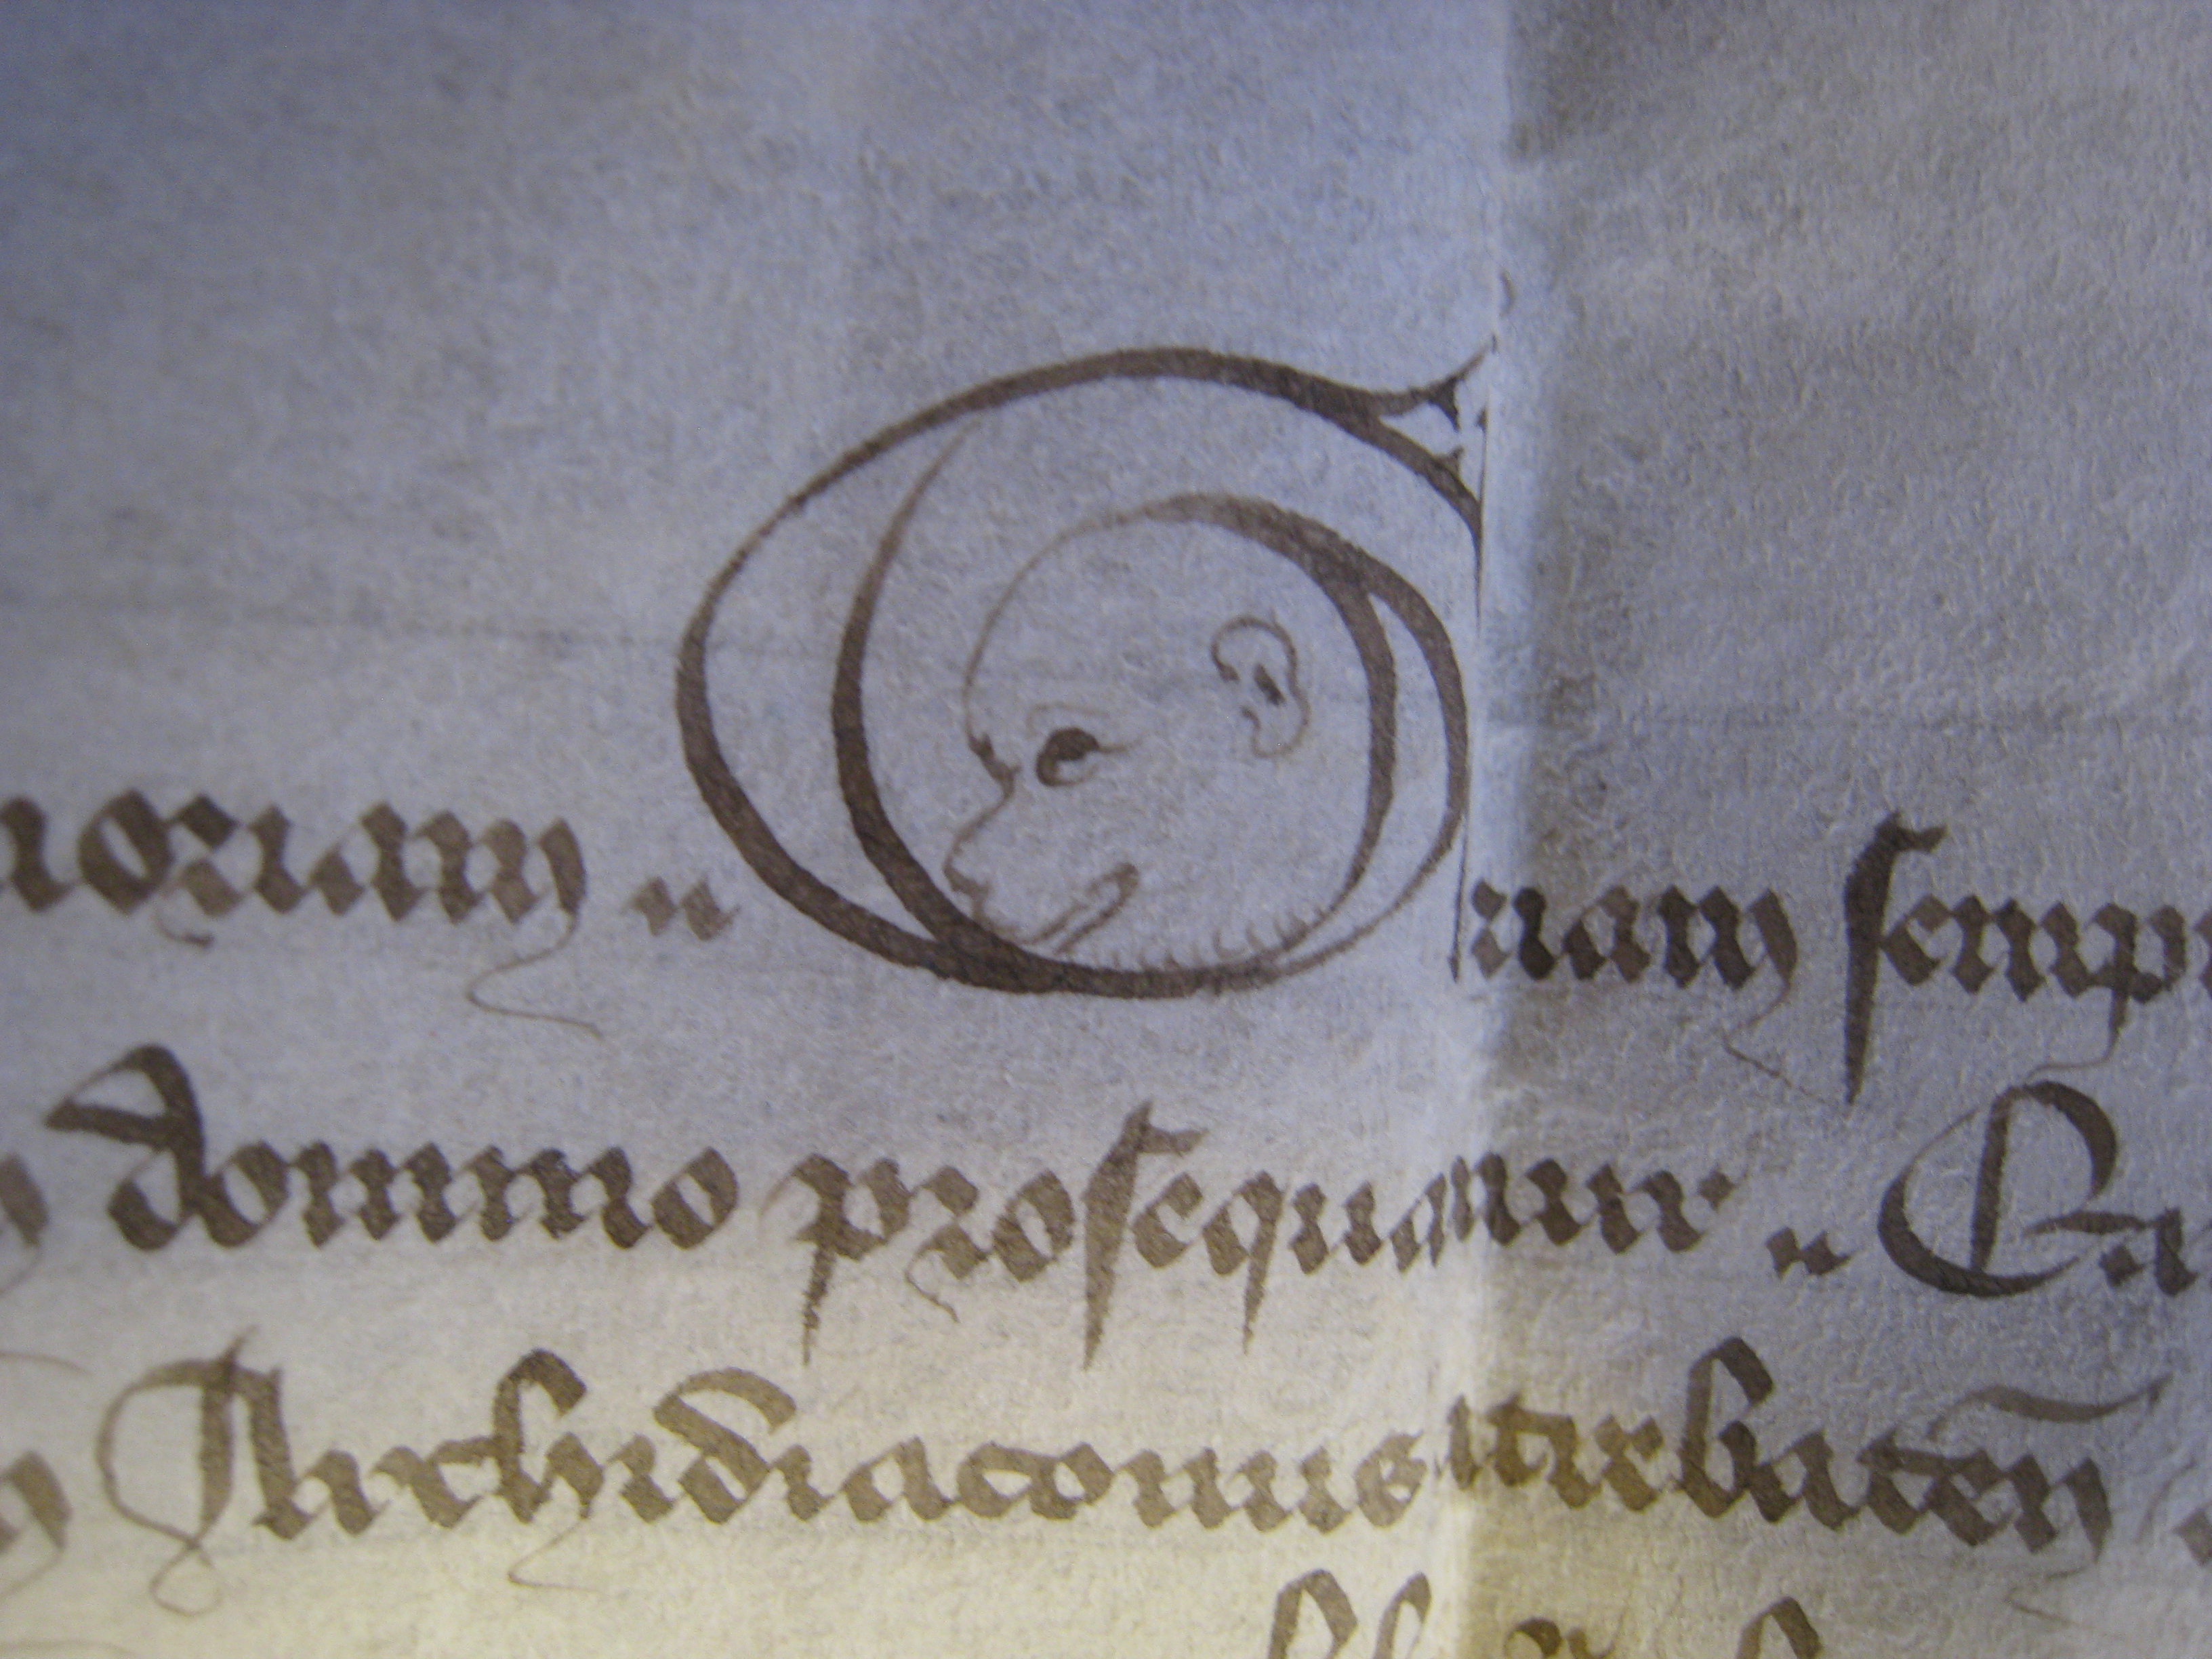 moriam „ semp
domino prosequamur „ Ea
Archidiaconus trebaten̄